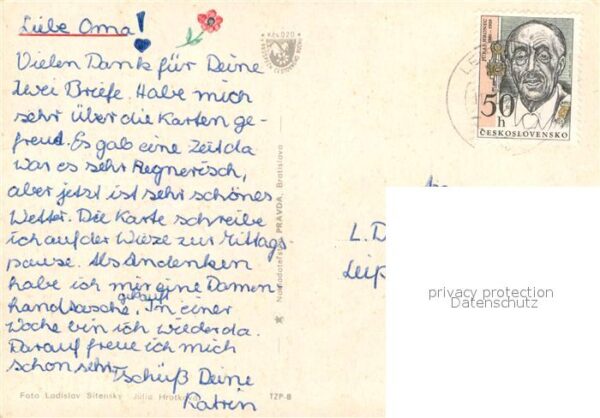 Liebe Oma!
Vielen Dank für Deine
zwei Briefe. Habe mich
sehr über die Karten ge-
freut. Es gab eine Zeit da
war es sehr Regnerisch,
aber jetzt ist sehr schönes
Wetter. Die Karte schreibe
ich auf der Wieze zur Mittags-
pause. Als Andenken
habe ich mir eine Damen-
handtasche gekauft. In einer
Woche bin ich wieder da.
Darauf freue ich mich
schon sehr.
Tschüß Deine
Katrin
Foto Ladislav Sitenský, Júlia Hrotková
TZP-B
Nakladateľstvo PRAVDA, Bratislava
K 24 020
50 h
ČESKOSLOVENSKO
LE
L. D
Leip
privacy protection
Datenschutz